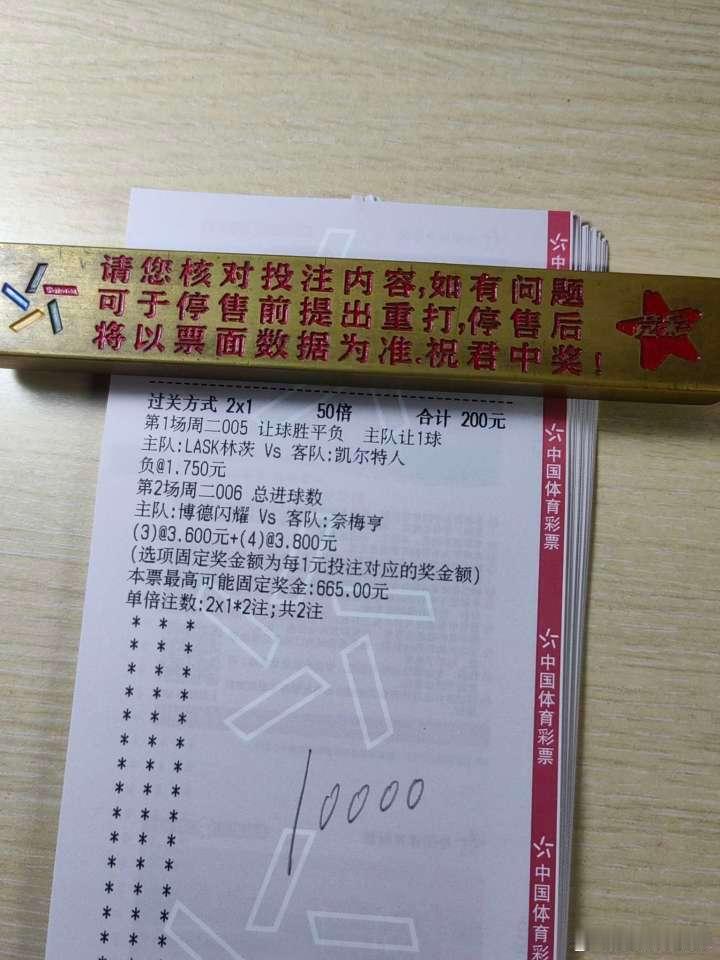 请您核对投注内容,如有问题
可于停售前提出重打,停售后
将以票面数据为准.祝君中奖!
过关方式 2x1 50倍 合计 200元
第1场周二005 让球胜平负 主队让1球
主队:LASK林茨 Vs 客队:凯尔特人
负@1.750元
第2场周二006 总进球数
主队:博德闪耀 Vs 客队:奈梅亨
(3)@3.600元+(4)@3.800元
(选项固定奖金额为每1元投注对应的奖金额)
本票最高可能固定奖金:665.00元
单倍注数:2x1*2注;共2注
* * *
* * *
* * *
* * *
* * *
* * *
* * *
* * *
* * *
* * *
* * *
* * *
* * *
10000
中国体育彩票
中国体育彩票
中国体育彩票
中国体育彩